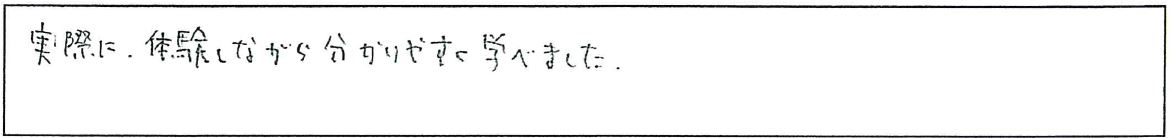 実際に、体験しながら分かりやすく学べました。